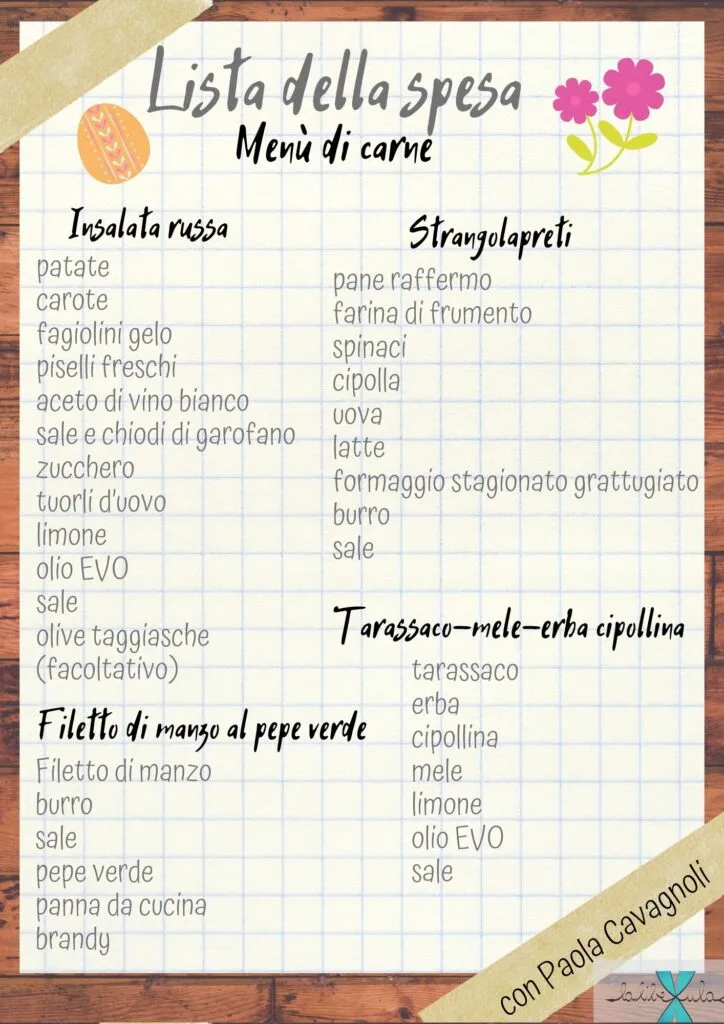 Lista della spesa
Menù di carne
Insalata russa
patate
carote
fagiolini gelo
piselli freschi
aceto di vino bianco
sale e chiodi di garofano
zucchero
tuorli d'uovo
limone
olio EVO
sale
olive taggiasche
(facoltativo)
Filetto di manzo al pepe verde
Filetto di manzo
burro
sale
pepe verde
panna da cucina
brandy
Strangolapreti
pane raffermo
farina di frumento
spinaci
cipolla
uova
latte
formaggio stagionato grattugiato
burro
sale
Tarassaco-mele-erba cipollina
tarassaco
erba
cipollina
mele
limone
olio EVO
sale
con Paola Cavagnoli